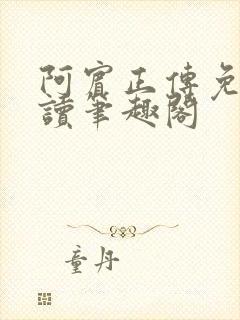 阿賓正傳免
讀筆趣閣
童丹